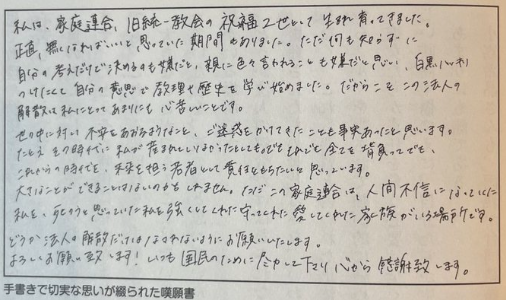 私は、家庭連合、旧統一教会の祝福2世として生まれ育ってきました。
正直、無くなればいいと思っていた期間もありました。ただ何も知らずに
自分の考えだけで決めるのも嫌だと、親に色々言われることも嫌だと思い、白黒ハッキリ
つけたくて自分の意思で教理や歴史を学び始めました。だからこそこの法人の
解散は私にとってあまりにも心苦しいことです。
世の中に対し不安をあおるようなこと、ご迷惑をかけてきたことも事実あったと思います。
たとえその時代に私が産まれていなかったとしても。でもそれでも全てを背負ってでも、
これからの時代を、未来を担う若者として責任をもちたいと思っています。
大きなことができることはないのかもしれません。ただこの家庭連合は、人間不信になっていた
私を、死のうと思っていた私を強くしてくれた守ってくれた愛してくれた家族がいる場所です。
どうか法人の解散だけはなされないようにお願いいたします。
よろしくお願い致します！いつも国民のために尽力して下さり心から感謝致します。
手書きで切実な思いが綴られた嘆願書